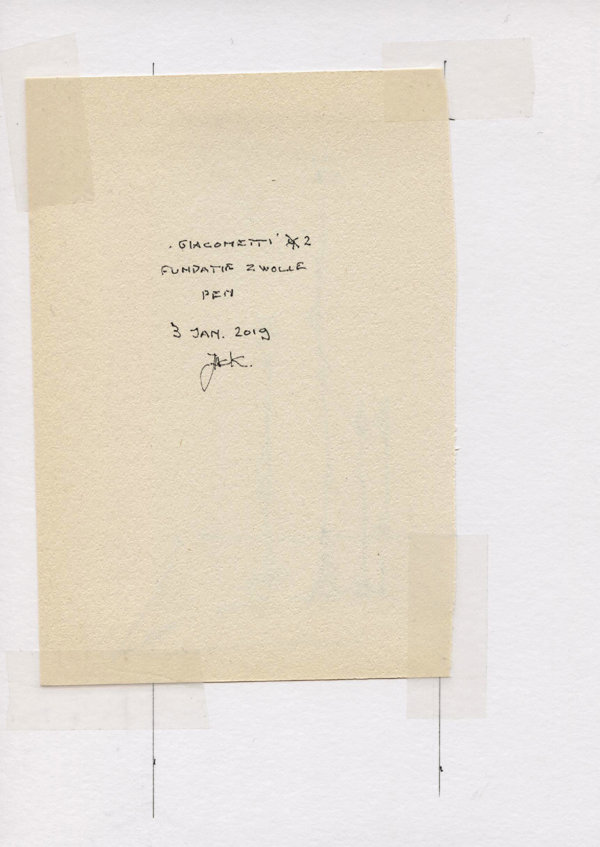 . GIACOMETTI' 2
FUNDATIE ZWOLLE
PEN
3 JAN. 2019